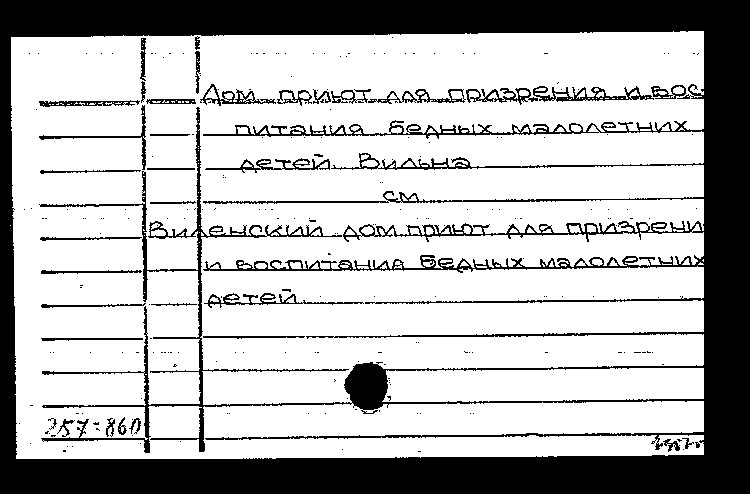 Дом приют для призрения и вос-
питания бедных малолетних
детей. Вильна
см.
Виленский дом приют для призрени
и воспитания бедных малолетних
детей.
257-860